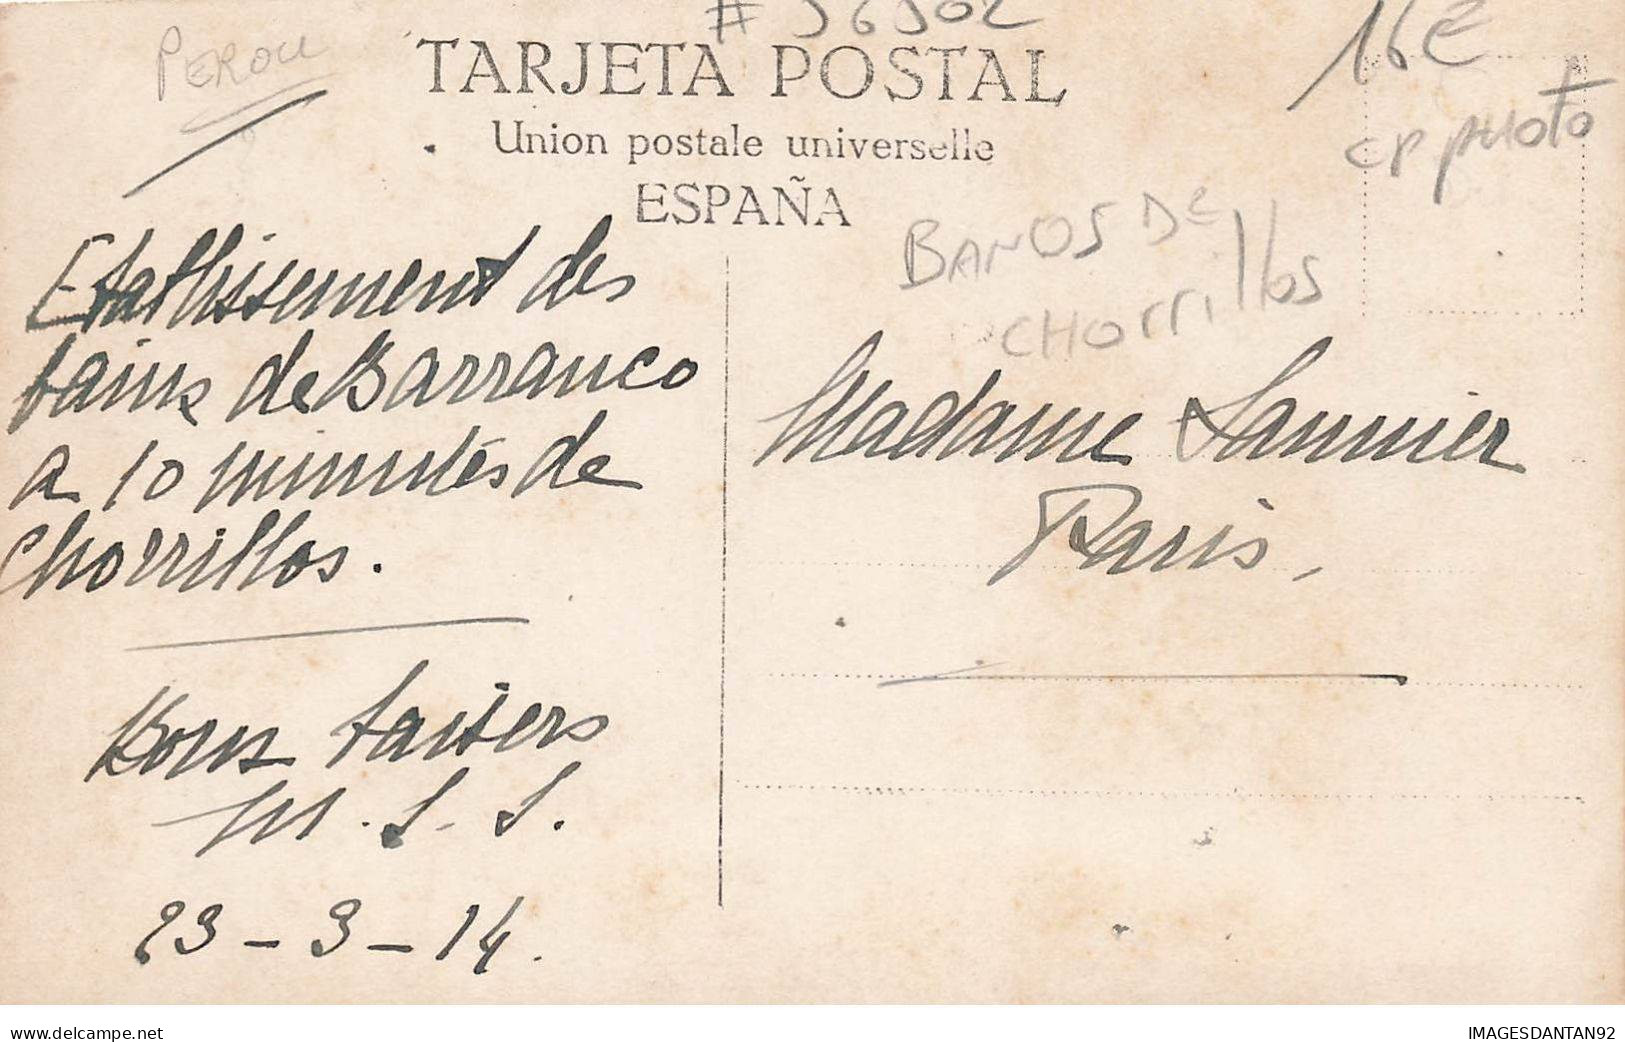 PEROU
# 56902
16€
TARJETA POSTAL
Union postale universelle
ESPAÑA
CP PHOTO
BANOS DE
CHORrillos
Etablissement des
bains de Barranco
a 10 minutes de
Chorrillos.
Bons baisers
M. S. S.
23-3-14.
Madame Sannier
Paris,
delcampe.net
IMAGESDANTAN92